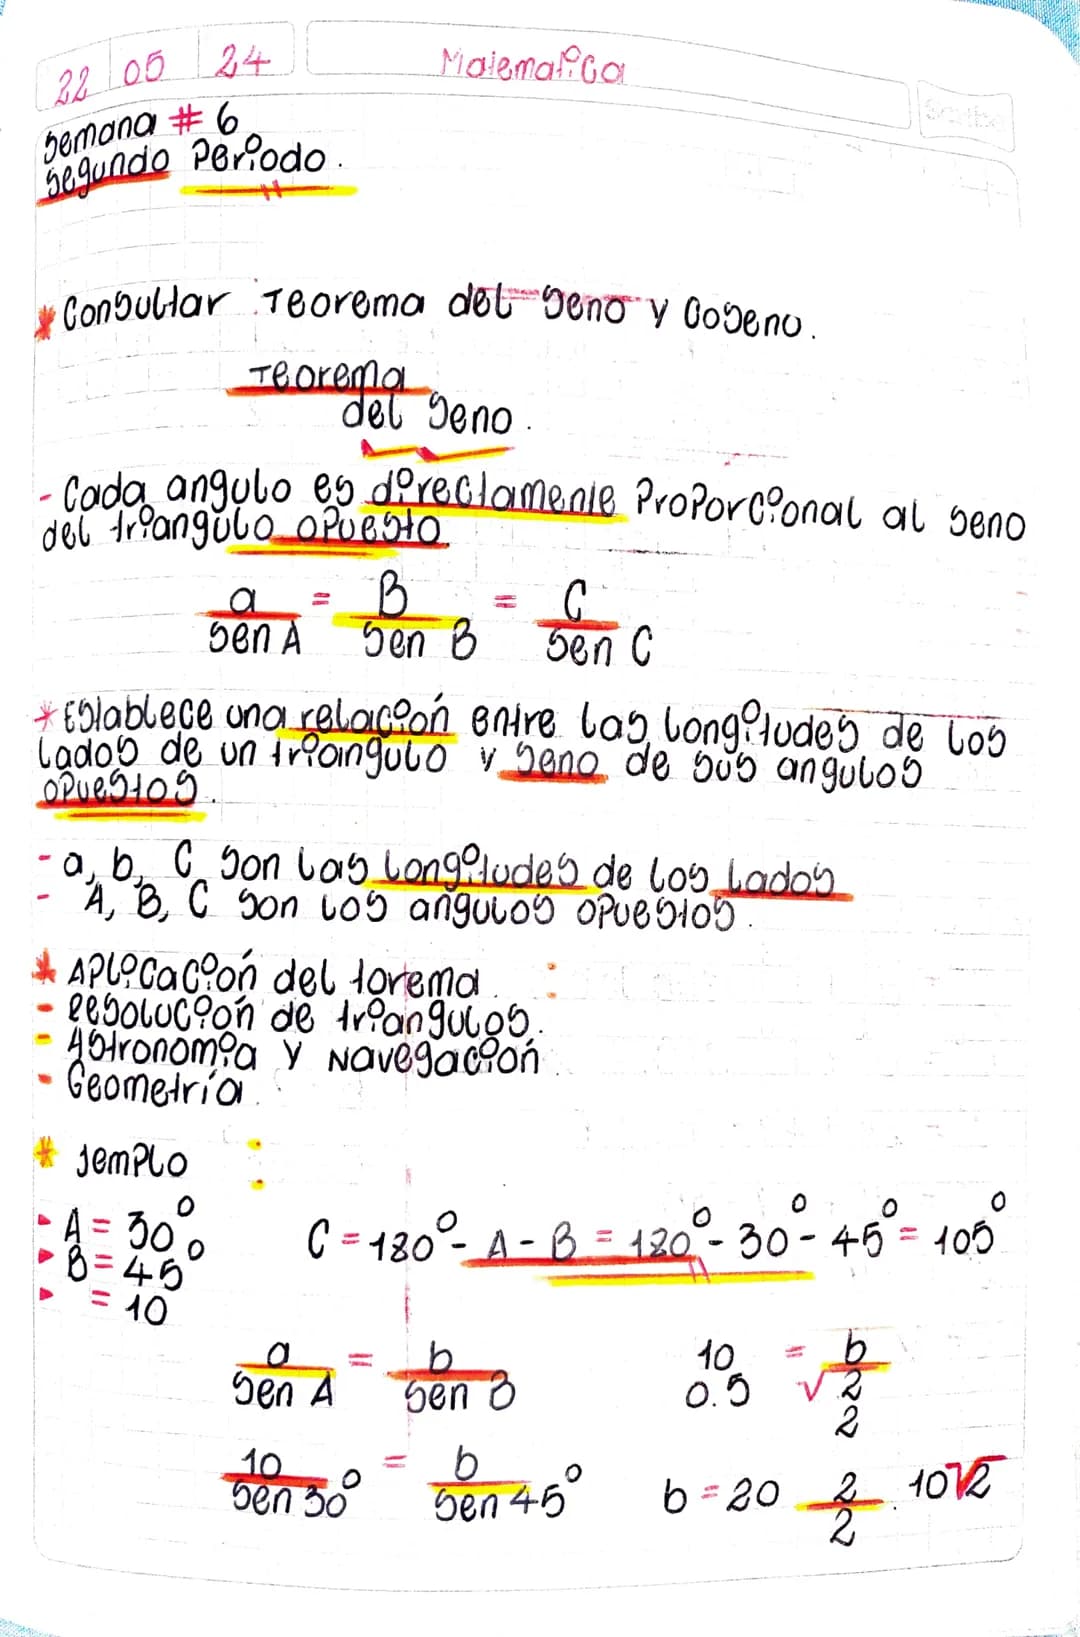 22 05 24 Matematica
Scribe
Semana # 6
Segundo Periodo.
* Consultar Teorema del seno y Coseno.
Teorema
del seno.
- Cada angulo es directamente Proporcional al seno
del triangulo opuesto
a/sen A = B/sen B = C/sen C
* Establece una relación entre las longitudes de los
lados de un triangulo y seno de sus angulos
opuestos.
- a, b, C son las longitudes de los lados
- A, B, C son los angulos opuestos.
* Aplicación del torema :
- Resolución de triangulos.
- Astronomia y Navegación.
- Geometría.
* Jemplo :
A = 30° C = 180° - A - B = 180° - 30° - 45° = 105°
B = 45°
= 10
a/sen A = b/sen B 10 0.5 = b/√2 2
10/sen 30° = b/sen 45° b = 20 2/2 . 10√2